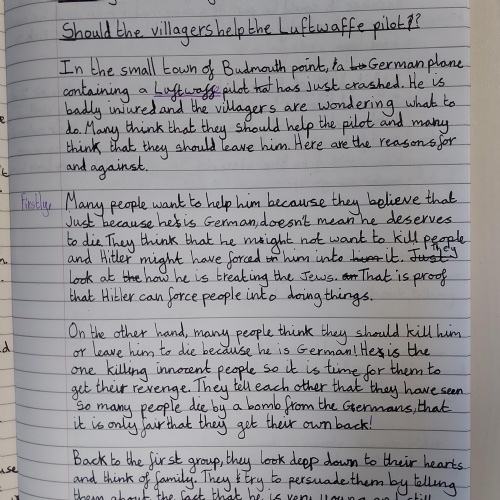 Should the villagers help the Luftwaffe pilot??
In the small town of Budmouth point, a German plane
containing a Luftwaffe pilot has just crashed. He is
badly injured and the villagers are wondering what to
do. Many think that they should help the pilot and many
think that they should leave him. Here are the reasons for
and against.
Firstly, Many people want to help him because they believe that
Just because he is German, doesn't mean he deserves
to die. They think that he might not want to kill people
and Hitler might have forced him into it. They
look at how he is treating the Jews. That is proof
that Hitler can force people into doing things.
On the other hand, many people think they should kill him
or leave him to die because he is German! He is the
one killing innocent people so it is time for them to
get their revenge. They tell each other that they have seen
so many people die by a bomb from the Germans, that
it is only fair that they get their own back!
Back to the first group, they look deep down to their hearts
and think of family. They try to persuade them by telling
them about the fact that he is very young